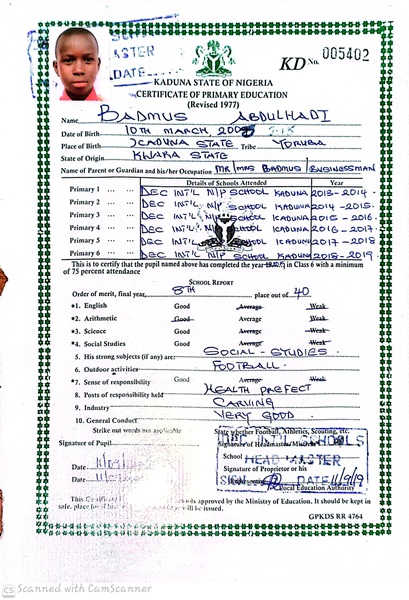 KD No. 005402
KADUNA STATE OF NIGERIA
CERTIFICATE OF PRIMARY EDUCATION
(Revised 1977)
Name BADMUS ABDULHADI
Date of Birth 10TH MARCH,
Place of Birth KADUNA STATE Tribe YORUBA
State of Origin KWARA STATE
Name of Parent or Guardian and his/her Occupation MR/MRS BADMUS BUSINESSMAN
Details of Schools Attended Year
Primary 1 ... ... DEC INT'L N/P SCHOOL KADUNA 2013-2014
Primary 2 ... ... DEC INT'L N/P SCHOOL KADUNA 2014-2015
Primary 3 ... ... DEC INT'L N/P SCHOOL KADUNA 2015-2016
Primary 4 ... ... DEC INT'L N/P SCHOOL KADUNA 2016-2017
Primary 5 ... ... DEC INT'L N/P SCHOOL KADUNA 2017-2018
Primary 6 ... ... DEC INT'L N/P SCHOOL KADUNA 2018-2019
This is to certify that the pupil named above has completed the year in Class 6 with a minimum
of 75 percent attendance
SCHOOL REPORT
Order of merit, final year, 8TH place out of 40
*1. English Good Average Weak
*2. Arithmetic Good Average Weak
*3. Science Good Average Weak
*4. Social Studies Good Average Weak
5. His strong subjects (if any) are: SOCIAL-STUDIES.
6. Outdoor activities FOOTBALL.
*7. Sense of responsibility Good Average Weak
8. Posts of responsibility held HEALTH PREFECT
9. Industry CARVING
10. General Conduct VERY GOOD.
Strike out words not applicable State whether Football, Athletics, Scouting, etc.
Signature of Pupil Signature of Headmaster/Mistress
School HEAD MASTER
Date Signature of Proprietor or his
Date SIGN DATE 11/9/19
Local Education Authority
This is approved by the Ministry of Education. It should be kept in
safe, will be issued.
GPKDS RR 4764
CS Scanned with CamScanner